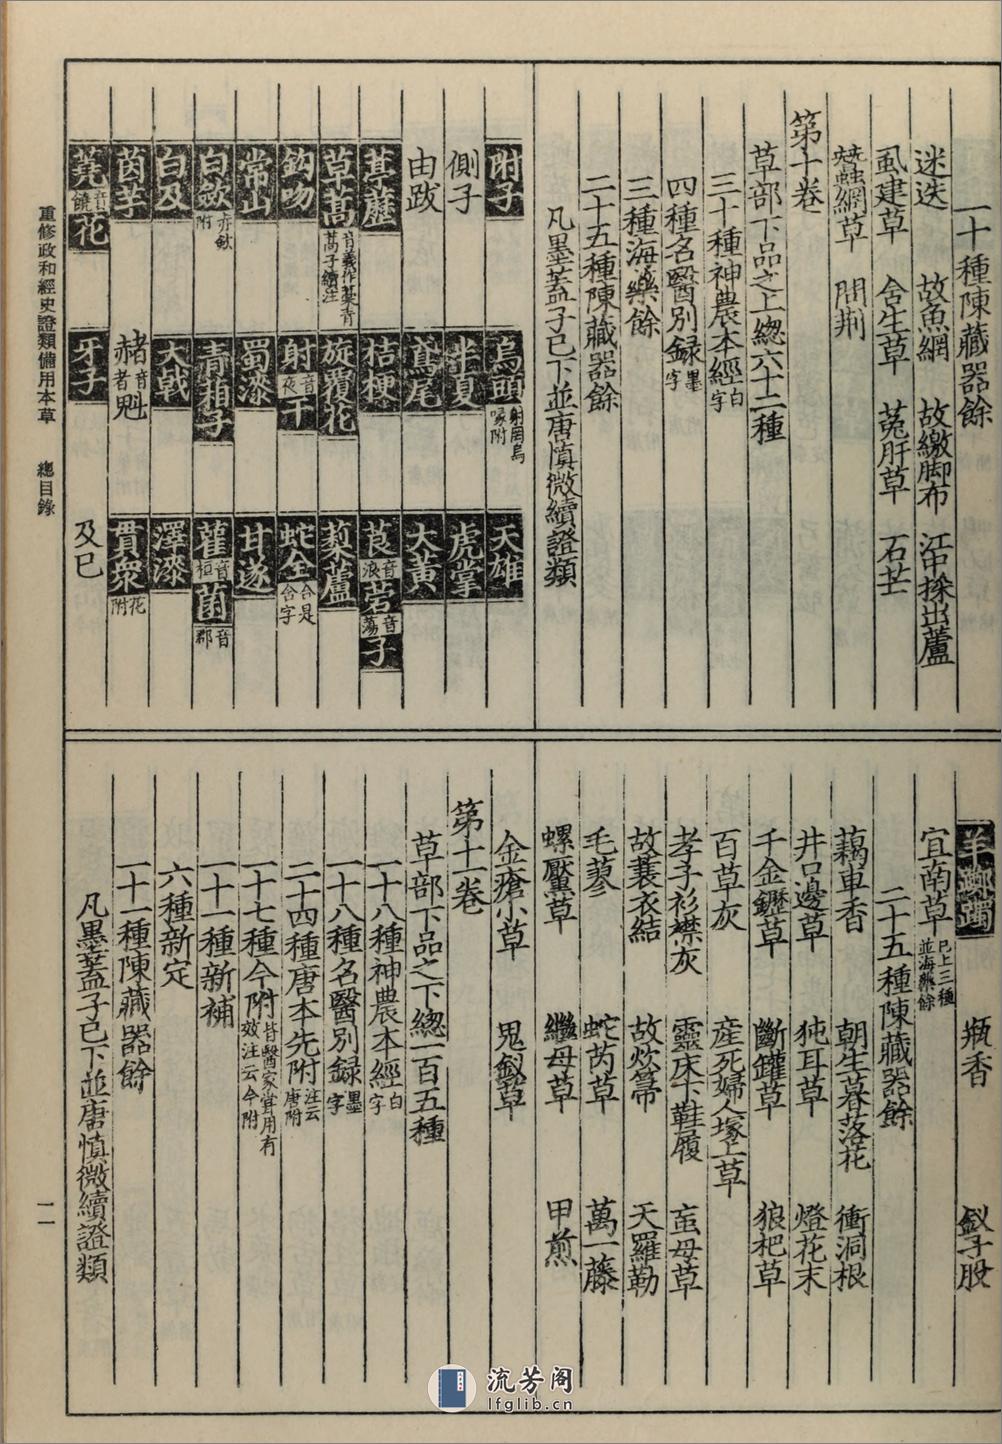 一十種陳藏器餘
迷迭　故魚網　故繳脚布　江中採出蘆
虱建草　含生草　菟肝草　石芒
蠶網草　問荆
第十卷
草部下品之上總六十二種
三十種神農本經白字
四種名醫別録墨字
三種海藥餘
二十五種陳藏器餘
凡墨蓋子已下並唐慎微續證類
附子　烏頭射罔烏喙附　天雄
側子　半夏　虎掌
由跋　鳶尾　大黃
葶藶　桔梗　莨音浪菪音蕩子
草蒿　旋覆花　藜蘆
鈎吻　射音夜干　蛇全合是含字
常山　蜀漆　甘遂
白斂赤斂附　青葙子　雚音桓菌音郡
白及　大戟　澤漆
茵芋　赭音者魁　貫衆花附
蕘音饒花　牙子　及已
羊躑躅　瓶香　釵子股
宜南草已上三種並海藥餘
二十五種陳藏器餘
藕車香　朝生暮落花　衝洞根
井口邊草　㹠耳草　燈花末
千金鑩草　斷罐草　狼杷草
百草灰　産死婦人塚上草
孝子衫襟灰　靈床下鞋履　䖟母草
故蓑衣結　故炊箒　天羅勒
毛蓼　蛇芮草　萬一藤
螺黶草　繼母草　甲煎
金瘡小草　鬼釵草
第十一卷
草部下品之下總一百五種
一十八種神農本經白字
一十八種名醫別録墨字
二十四種唐本先附注云唐附
一十七種今附皆醫家嘗用有效注云今附
一十一種新補
六種新定
一十一種陳藏器餘
凡墨蓋子已下並唐慎微續證類
重修政和經史證類備用本草　總目錄
一一
流芳阁
lfglib.cn